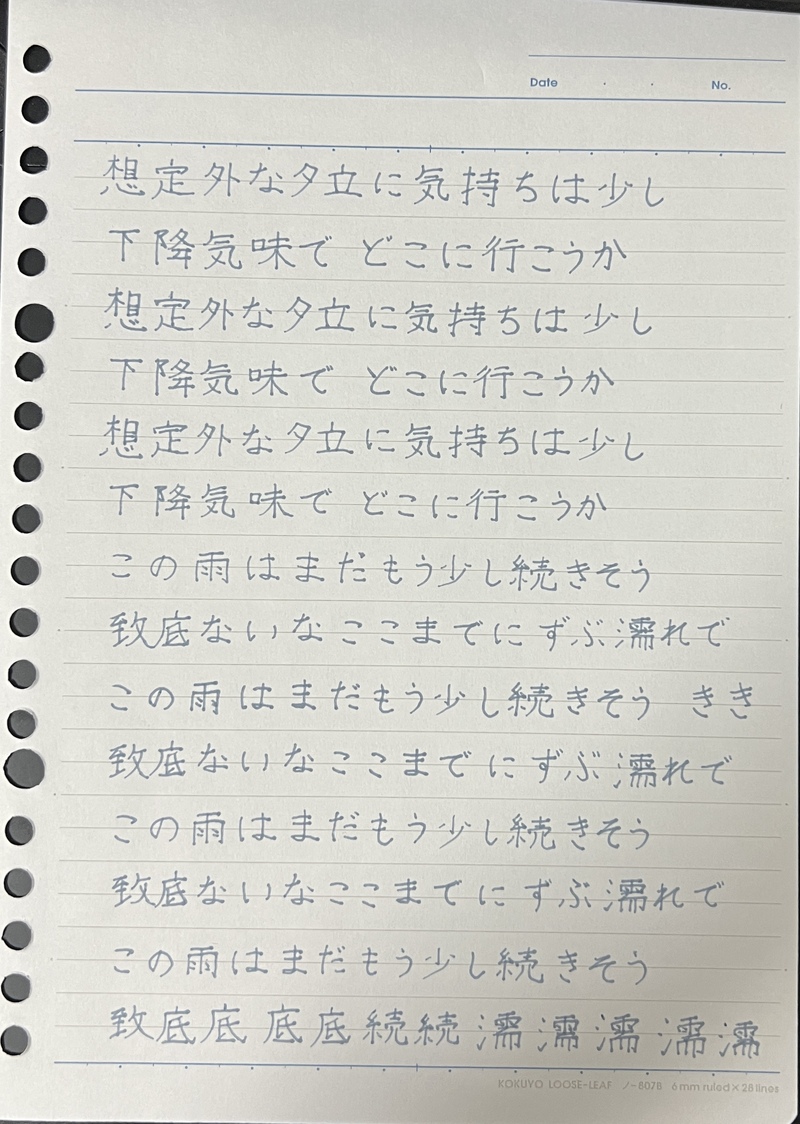 Date . . No.
想定外な夕立に気持ちは少し
下降気味で どこに行こうか
想定外な夕立に気持ちは少し
下降気味で どこに行こうか
想定外な夕立に気持ちは少し
下降気味で どこに行こうか
この雨はまだもう少し続きそう
致底ないなここまでにずぶ濡れで
この雨はまだもう少し続きそう きき
致底ないなここまでにずぶ濡れで
この雨はまだもう少し続きそう
致底ないなここまでにずぶ濡れで
この雨はまだもう少し続きそう
致底底 底底 続続 濡 濡 濡 濡 濡
KOKUYO LOOSE-LEAF ノ-807B 6mm ruled×28 lines